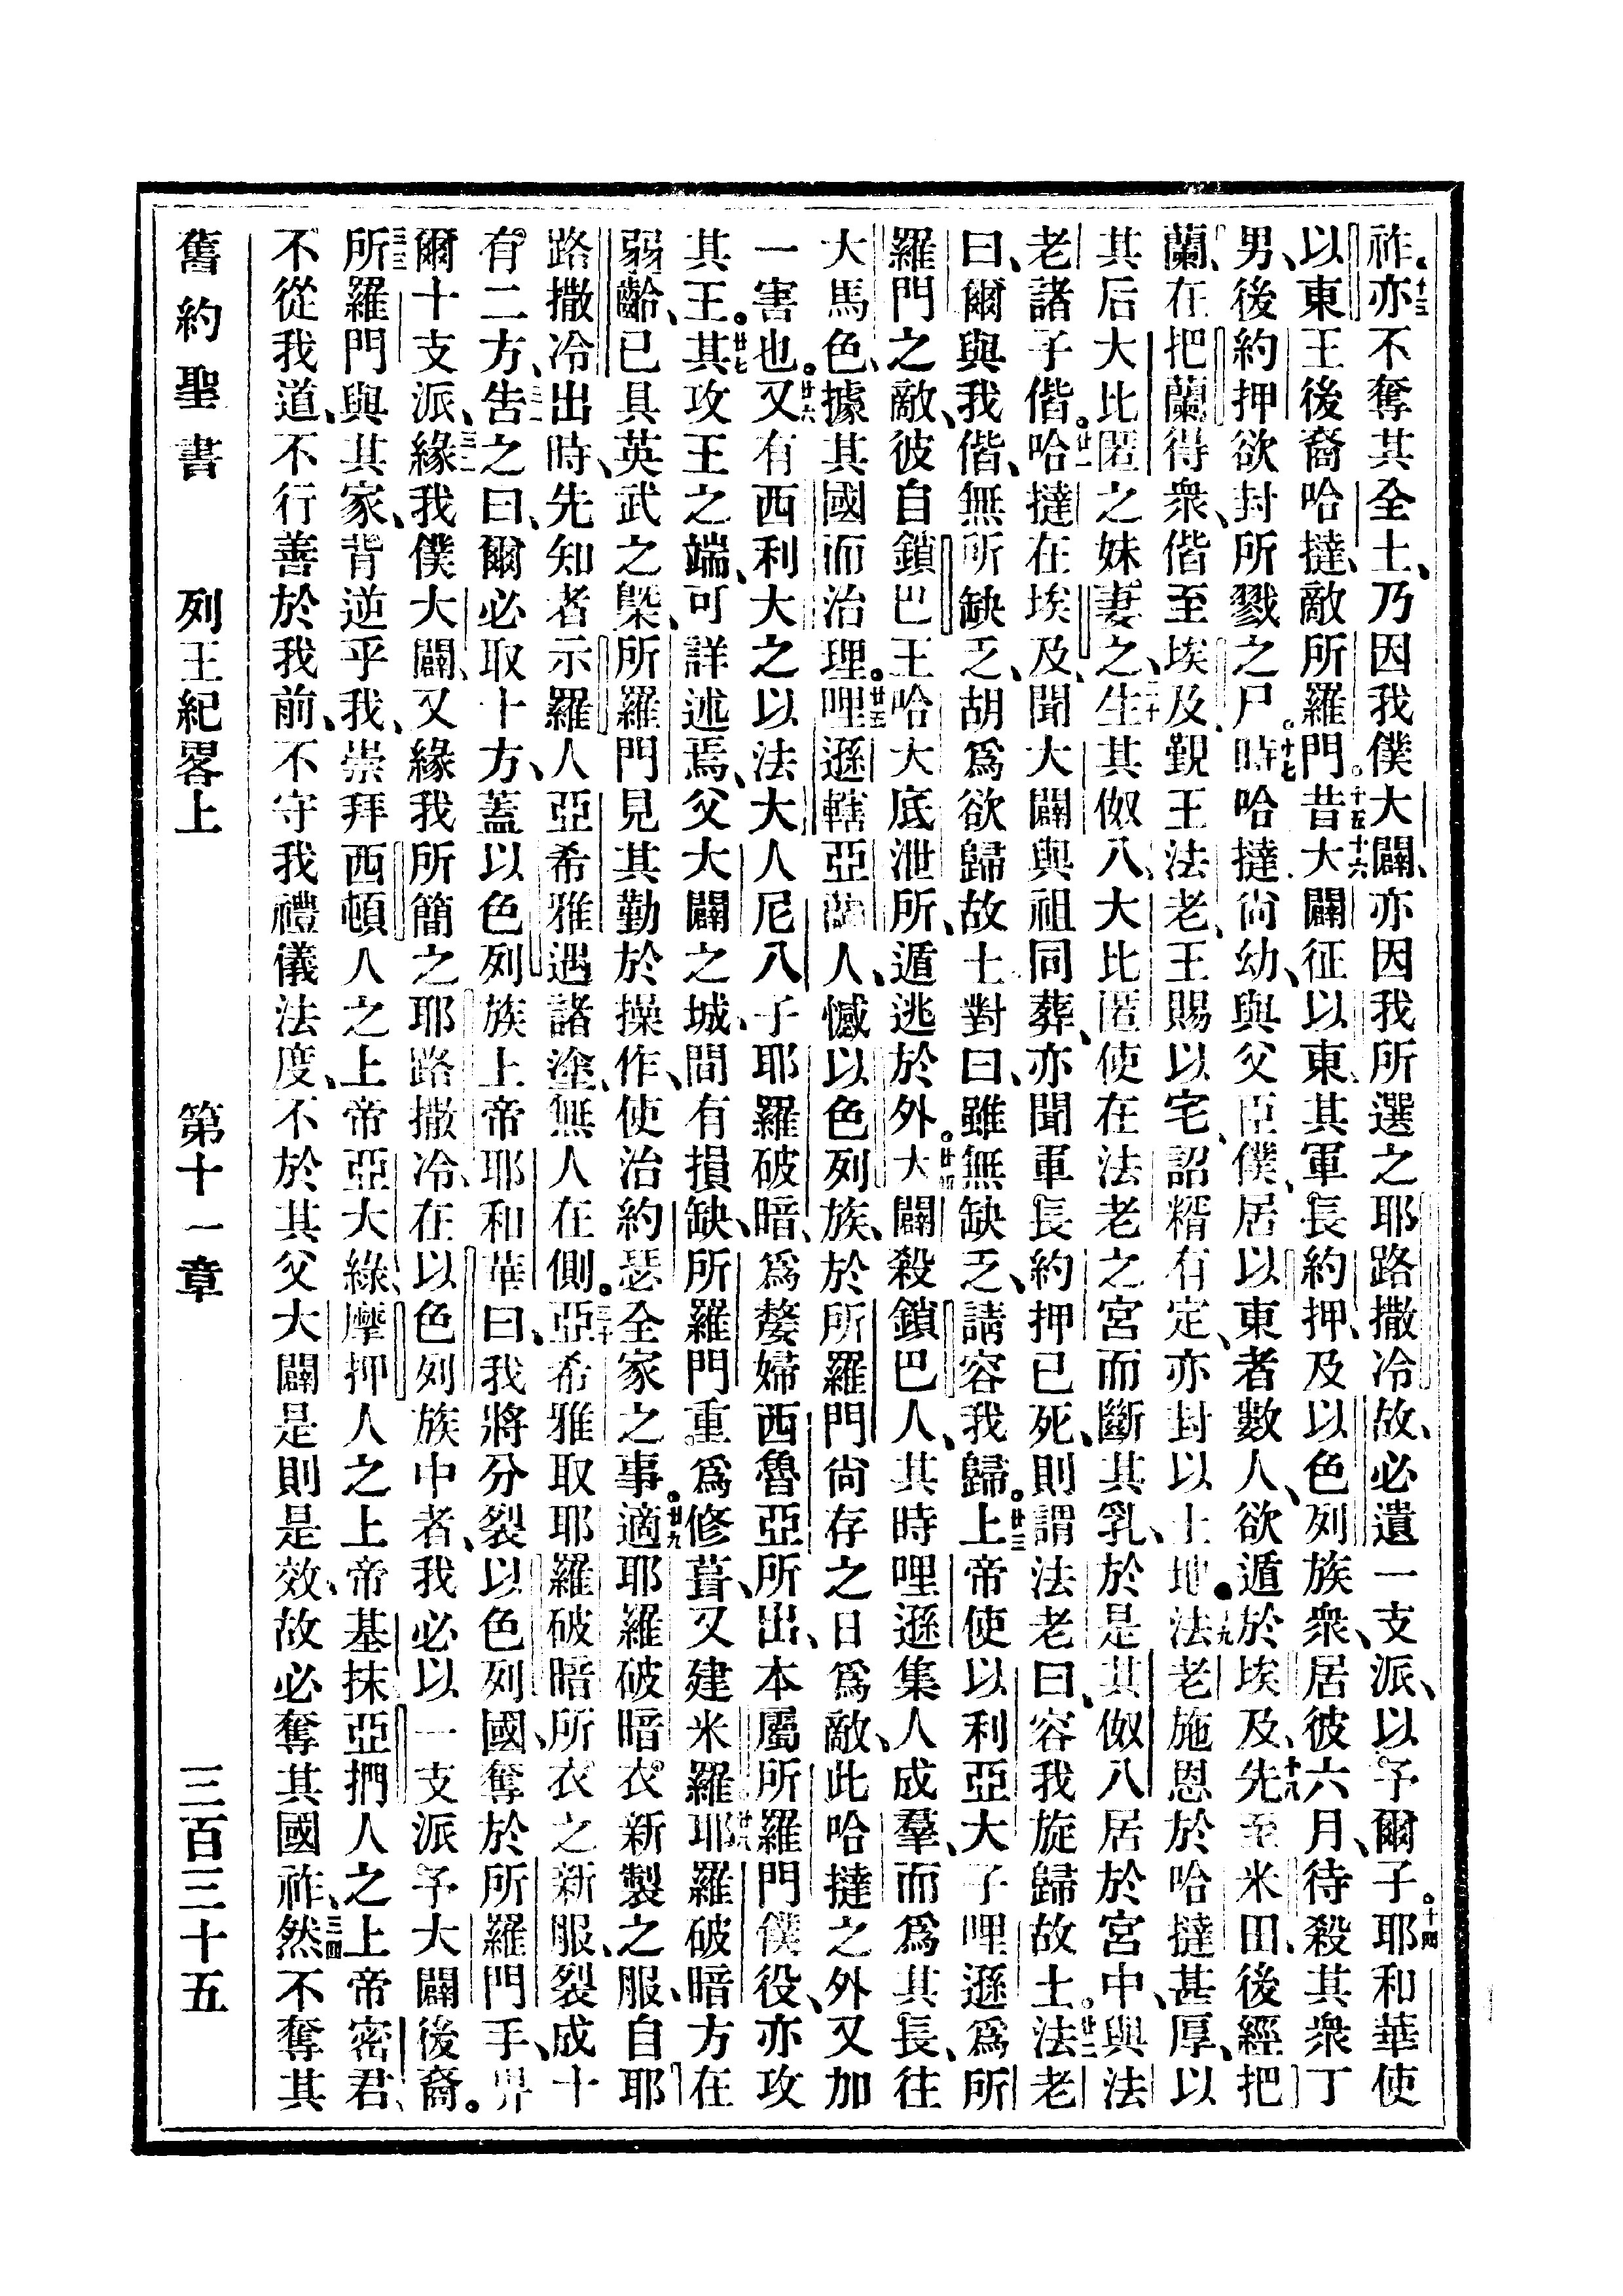 祚、十三亦不奪其全土、乃因我僕大闢、亦因我所選之耶路撒冷故、必遺一支派、以予爾子。十四耶和華使
以東王後裔哈撻、敵所羅門。十五十六昔大闢征以東、其軍長約押、及以色列族衆、居彼六月、待殺其衆丁
男、後約押欲封所戮之尸。十七時哈撻尙幼、與父臣僕、居以東者數人、欲遁於埃及、十八先至米田、後經把
蘭、在把蘭得衆、偕至埃及、覲王法老、王賜以宅、詔糈有定、亦封以土地。十九法老施恩於哈撻甚厚、以
其后大比匿之妹妻之、二十生其伮八、大比匿使在法老之宮而斷其乳、於是其伮八居於宮中、與法
老諸子偕。廿一哈撻在埃及、聞大闢與祖同葬、亦聞軍長約押已死、則謂法老曰、容我旋歸故土。廿二法老
曰、爾與我偕、無所缺乏、胡爲欲歸故土、對曰、雖無缺乏、請容我歸。廿三上帝使以利亞大子哩遜、爲所
羅門之敵、彼自鎖巴王哈大底泄所、遁逃於外。廿四大闢殺鎖巴人、其時哩遜集人成羣、而爲其長、往
大馬色、據其國而治理。廿五哩遜轄亞蘭人、憾以色列族、於所羅門尙存之日爲敵、此哈撻之外、又加
一害也。廿六又有西利大之以法大人尼八子耶羅破暗、爲嫠婦西魯亞所出、本屬所羅門僕役、亦攻
其王。廿七其攻王之端、可詳述焉、父大闢之城、間有損缺、所羅門重爲修葺、又建米羅。廿八耶羅破暗方在
弱齡、已具英武之槩、所羅門見其勤於操作、使治約瑟全家之事。廿九適耶羅破暗衣新製之服、自耶
路撒冷出時、先知者示羅人亞希雅遇諸塗、無人在側。三十亞希雅取耶羅破暗所衣之新服、裂成十
有二方、三一告之曰、爾必取十方、蓋以色列族上帝耶和華曰、我將分裂以色列國、奪於所羅門手、畀
爾十支派、三二緣我僕大闢、又緣我所簡之耶路撒冷、在以色列族中者、我必以一支派予大闢後裔。
三三所羅門與其家、背逆乎我、崇拜西頓人之上帝亞大綠、摩押人之上帝基抹、亞捫人之上帝密君、
不從我道、不行善於我前、不守我禮儀法度、不於其父大闢是則是效、故必奪其國祚、三四然不奪其
舊約聖書 列王紀畧上 第十一章 三百三十五